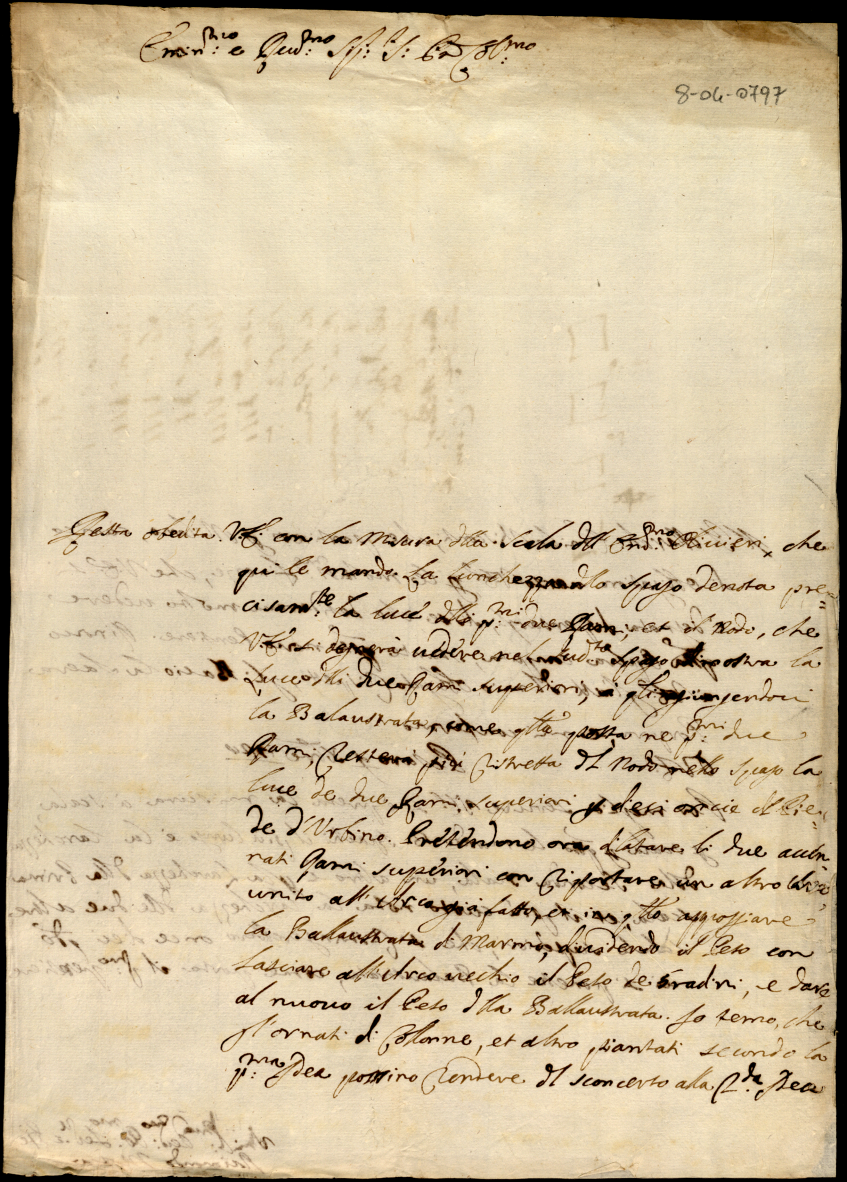 Emin.mo e Rev.mo Sig.r
8-04-0797
Resta obedita V.E. con la misura dlla scala dll' Em.mo Rivieri, che
qui le mando. La larghezza dello spazo denota pre=
cisam.te la luce dlli p.mi due Rami, et il Nodo, che
V.E. si degnerà vedere nel sud.to spazo dimostra la
Luce dlli due Rami superiori, a
la Balaustrata, come q.lla posta ne p.mi due
Rami, resterà più ristretta dl Nodo nello spazo la
luce de due Rami superiori dl Pie=
de d'Urbino. Pretendono ora dilatare li due
Rami superiori con riportare un altro Arco
unito all' Arco già fatto, et in q.llo appoggiare
la Ballaustrata di Marmo, dividendo il Peso con
lasciare all' Arco vecchio il Peso de Gradini, e dare
al nuovo il Peso dlla Ballaustrata. Io temo, che
gl'ornati di Colonne, et altro piantati secondo la
p.ma Idea possino rendere dl sconcerto alla 2.da Idea